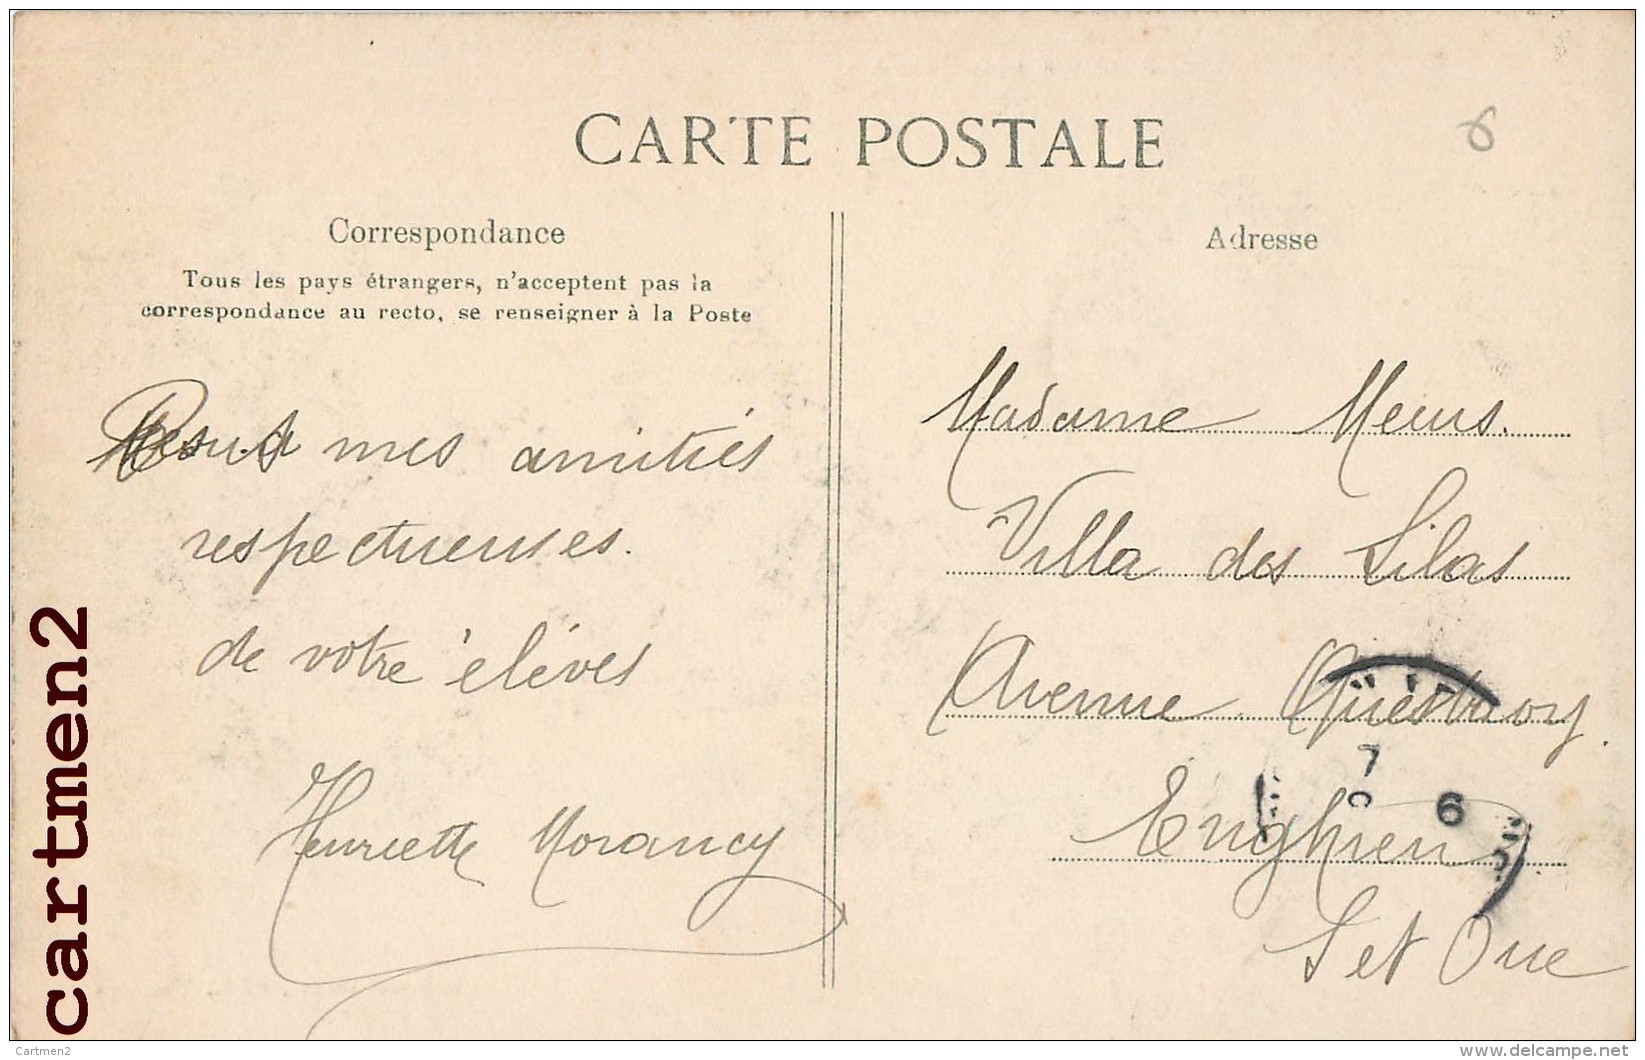 CARTE POSTALE
6
Correspondance
Tous les pays étrangers, n'acceptent pas la
correspondance au recto, se renseigner à la Poste
mes amitiés
respectueuses.
de votre élèves
Henriette Morancy
Adresse
Madame Meus.
Villa des Lilas
Avenue
Enghien
S et Oise
7
6
cartmen2
Cartmen2
delcampe.net